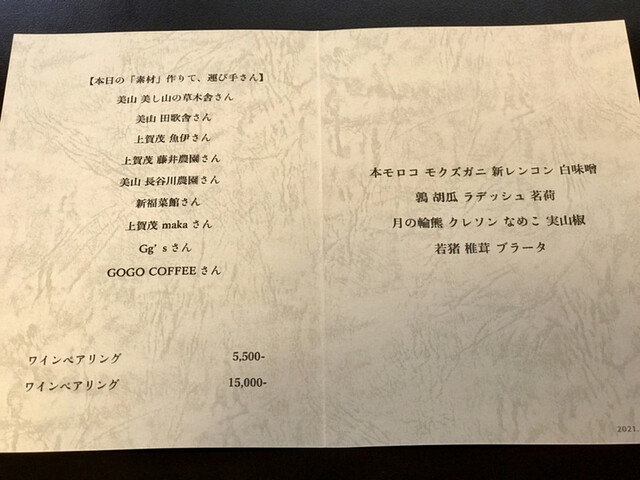 【本日の「素材」作りて、運び手さん】
美山 美し山の草木舎さん
美山 田歌舎さん
上賀茂 魚伊さん
上賀茂 藤井農園さん
美山 長谷川農園さん
新福菜館さん
上賀茂 maka さん
Gg’s さん
GOGO COFFEE さん
ワインペアリング 5,500-
ワインペアリング 15,000-
本モロコ モクズガニ 新レンコン 白味噌
鶉 胡瓜 ラデッシュ 茗荷
月の輪熊 クレソン なめこ 実山椒
若猪 椎茸 ブラータ
2021.